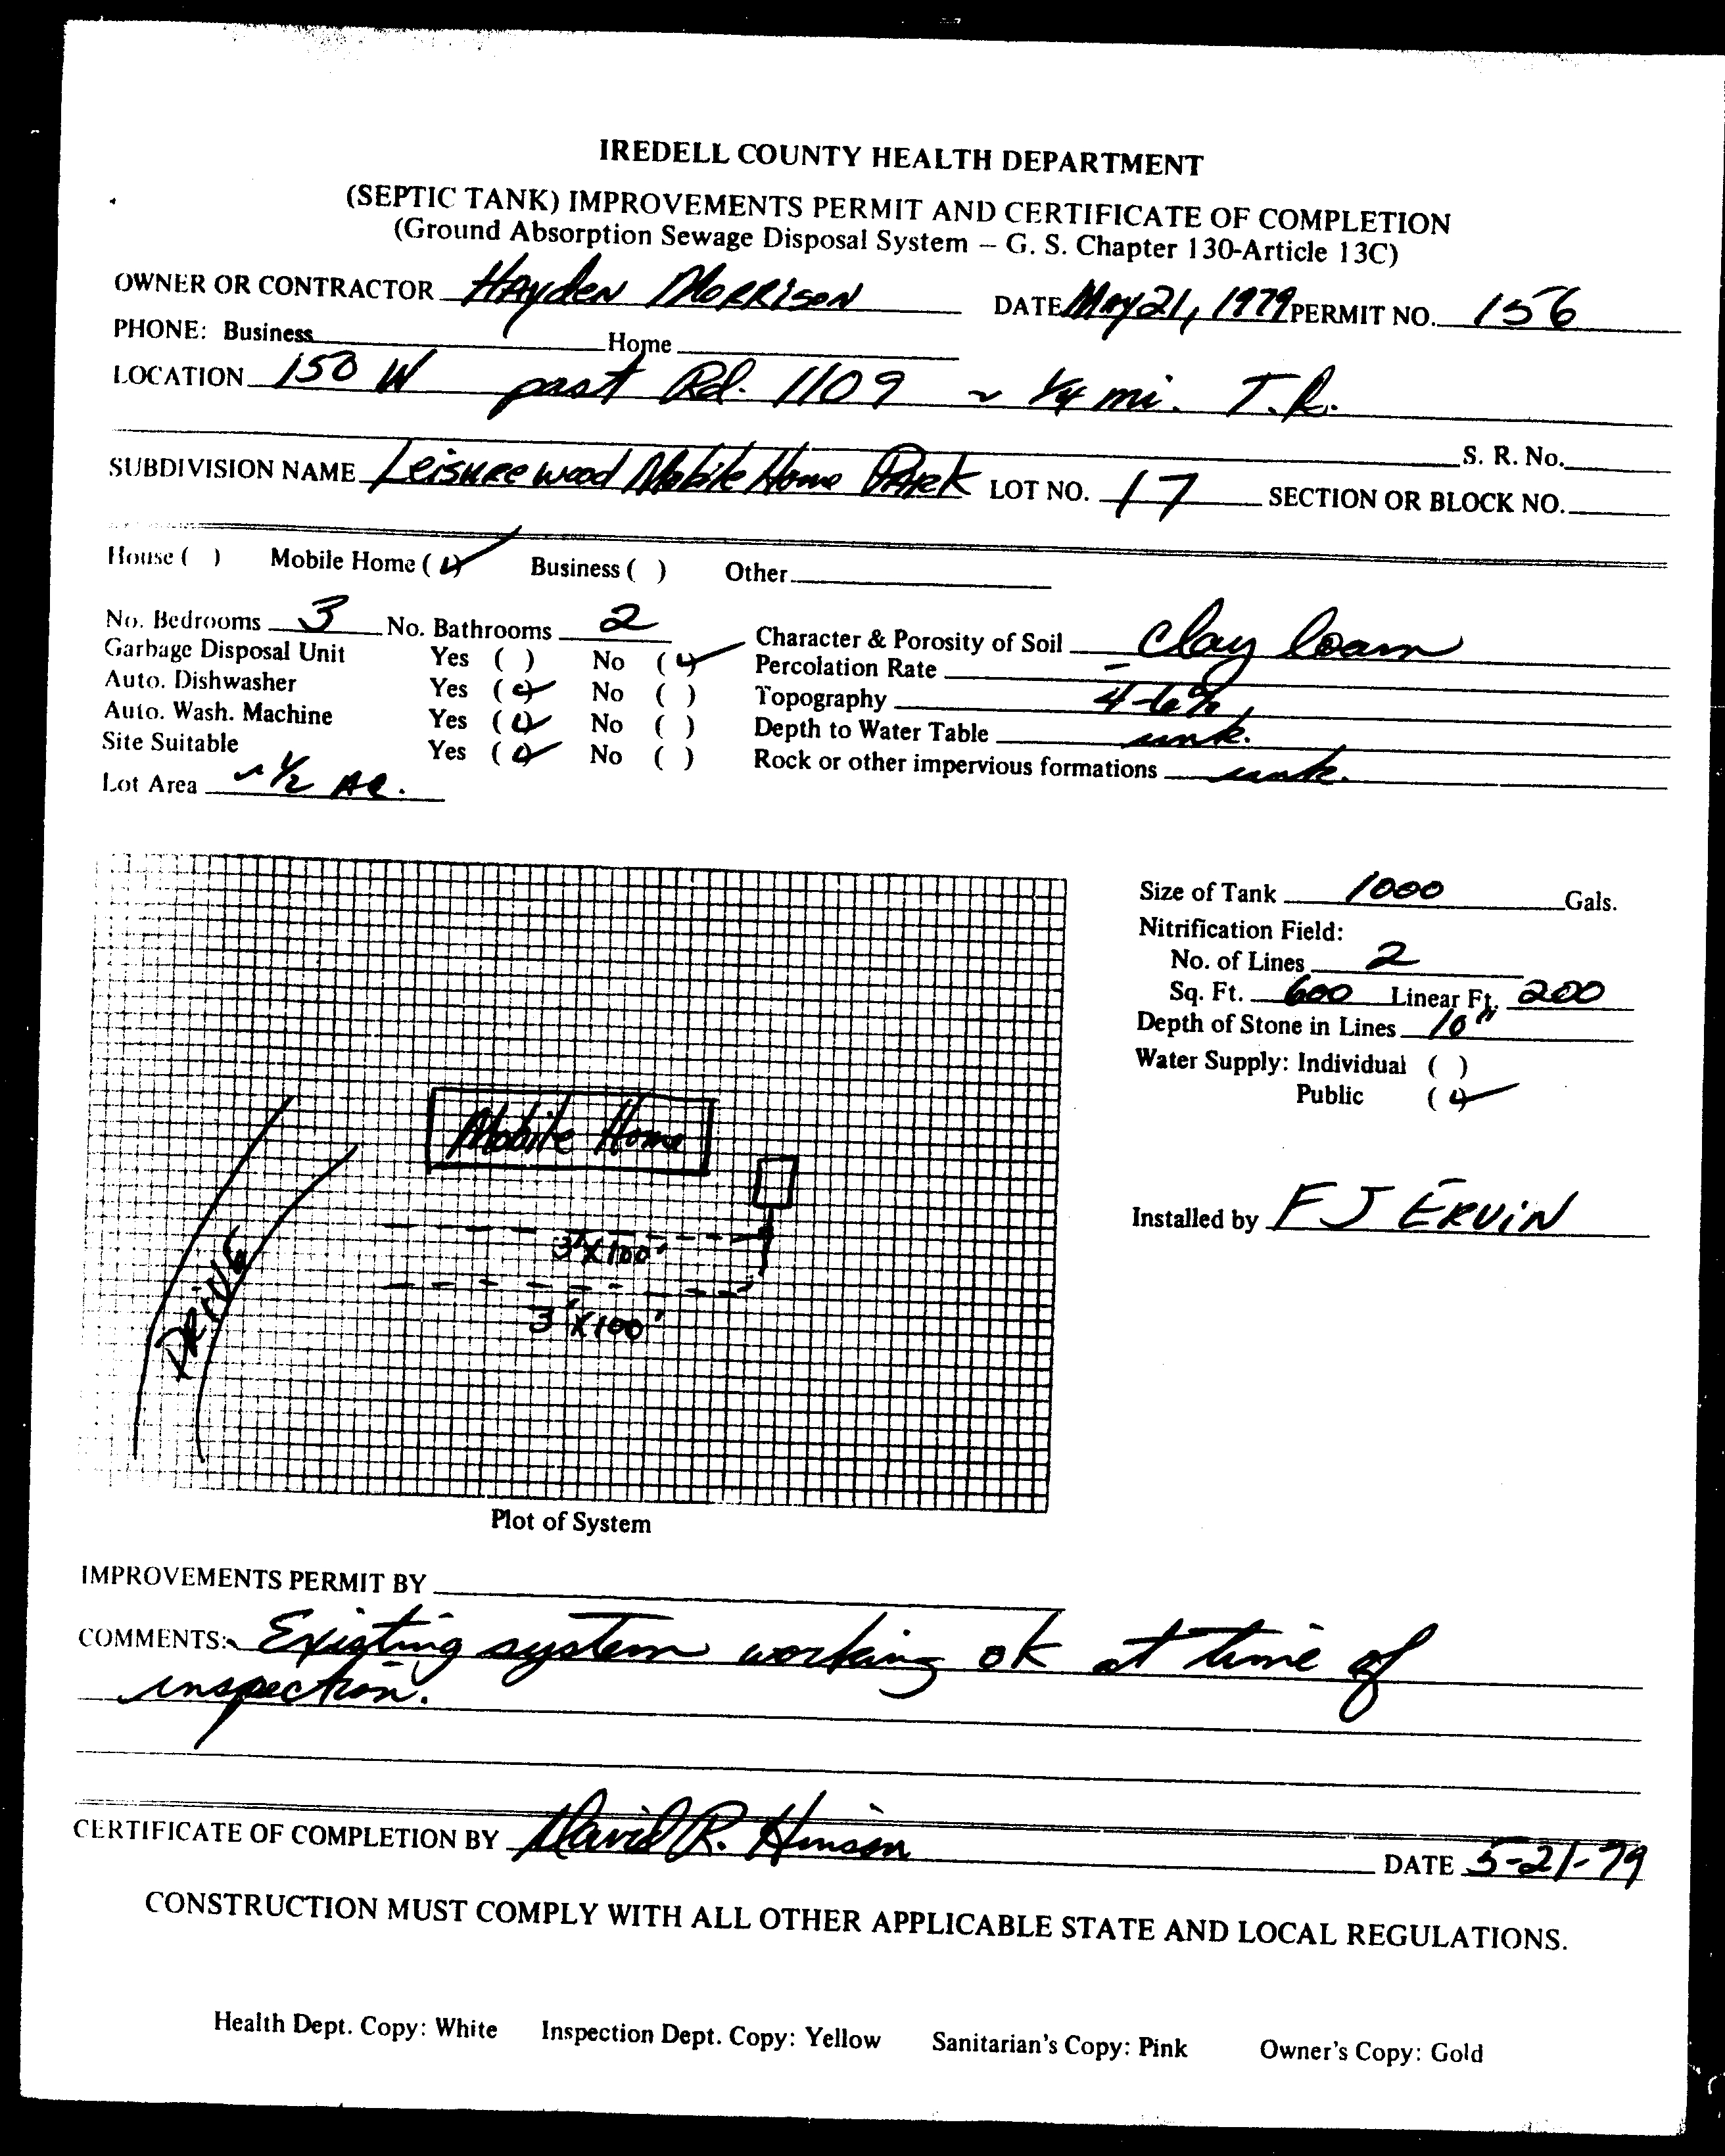 IREDELL COUNTY HEALTH DEPARTMENT
(SEPTIC TANK) IMPROVEMENTS PERMIT AND CERTIFICATE OF COMPLETION
(Ground Absorption Sewage Disposal System – G. S. Chapter 130-Article 13C)
OWNER OR CONTRACTOR Hayden Morrison DATE May 21, 1979 PERMIT NO. 156
PHONE: Business Home
LOCATION 150 W past Rd. 1109 ~ 1/4 mi. T.R.
S. R. No.
SUBDIVISION NAME Leisurewood Mobile Home Park LOT NO. 17 SECTION OR BLOCK NO.
House ( ) Mobile Home (✓) Business ( ) Other
No. Bedrooms 3 No. Bathrooms 2
Garbage Disposal Unit Yes ( ) No (✓)
Auto. Dishwasher Yes (✓) No ( )
Auto. Wash. Machine Yes (✓) No ( )
Site Suitable Yes (✓) No ( )
Lot Area ~ 1/2 AC.
Character & Porosity of Soil clay loam
Percolation Rate –
Topography 4-6%
Depth to Water Table unk.
Rock or other impervious formations unk.
Mobile Home
3'X100'
3'X100'
DRIVE
Plot of System
Size of Tank 1000 Gals.
Nitrification Field:
No. of Lines 2
Sq. Ft. 600 Linear Ft. 200
Depth of Stone in Lines 10"
Water Supply: Individual ( )
Public (✓)
Installed by F J ERVIN
IMPROVEMENTS PERMIT BY
COMMENTS: Existing system working ok at time of
inspection.
CERTIFICATE OF COMPLETION BY David R. Hinson DATE 5-21-79
CONSTRUCTION MUST COMPLY WITH ALL OTHER APPLICABLE STATE AND LOCAL REGULATIONS.
Health Dept. Copy: White Inspection Dept. Copy: Yellow Sanitarian's Copy: Pink Owner's Copy: Gold